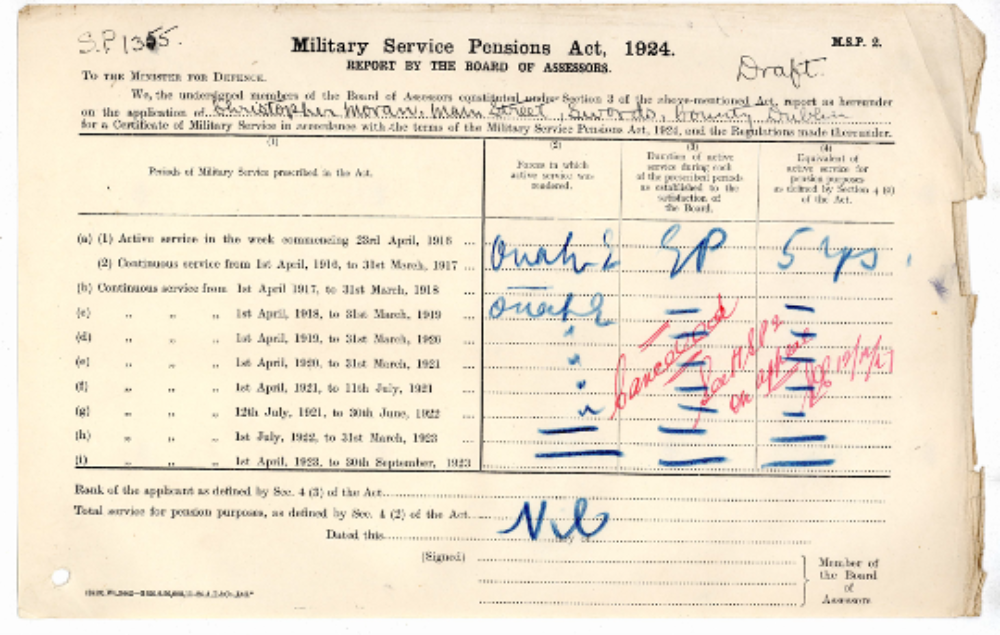 S.P. 1355.
Military Service Pensions Act, 1924.
M.S.P. 2.
REPORT BY THE BOARD OF ASSESSORS.
Draft.
TO THE MINISTER FOR DEFENCE.
We, the undersigned members of the Board of Assessors constituted under Section 3 of the above-mentioned Act, report as hereunder
on the application of Christopher Moran, Main Street, Swords, County Dublin
for a Certificate of Military Service in accordance with the terms of the Military Service Pensions Act, 1924, and the Regulations made thereunder.
(1) (2) (3) (4)
Periods of Military Service prescribed in the Act.
Forces in which
active service was
rendered.
Duration of active
service during each
of the prescribed periods
as established to the
satisfaction of
the Board.
Equivalent of
active service for
pension purposes
as defined by Section 4
of the Act.
(a) (1) Active service in the week commencing 23rd April, 1916 ...
(2) Continuous service from 1st April, 1916, to 31st March, 1917 ... 5 yrs
(b) Continuous service from 1st April 1917, to 31st March, 1918
(c) " " " 1st April, 1918, to 31st March, 1919 ...
(d) " " " 1st April, 1919, to 31st March, 1920 ... "
(e) " " " 1st April, 1920, to 31st March, 1921 ... "
(f) " " " 1st April, 1921, to 11th July, 1921 ... "
(g) " " " 12th July, 1921, to 30th June, 1922 ... "
(h) " " " 1st July, 1922, to 31st March, 1923 ...
(i) " " " 1st April, 1923, to 30th September, 1923
Cancelled
See M.S.P. 2
on appeal
12/12/27
Rank of the applicant as defined by Sec. 4 (3) of the Act
Total service for pension purposes, as defined by Sec. 4 (2) of the Act Nil
Dated this day of
(Signed)
Member of
the Board
of
Assessors